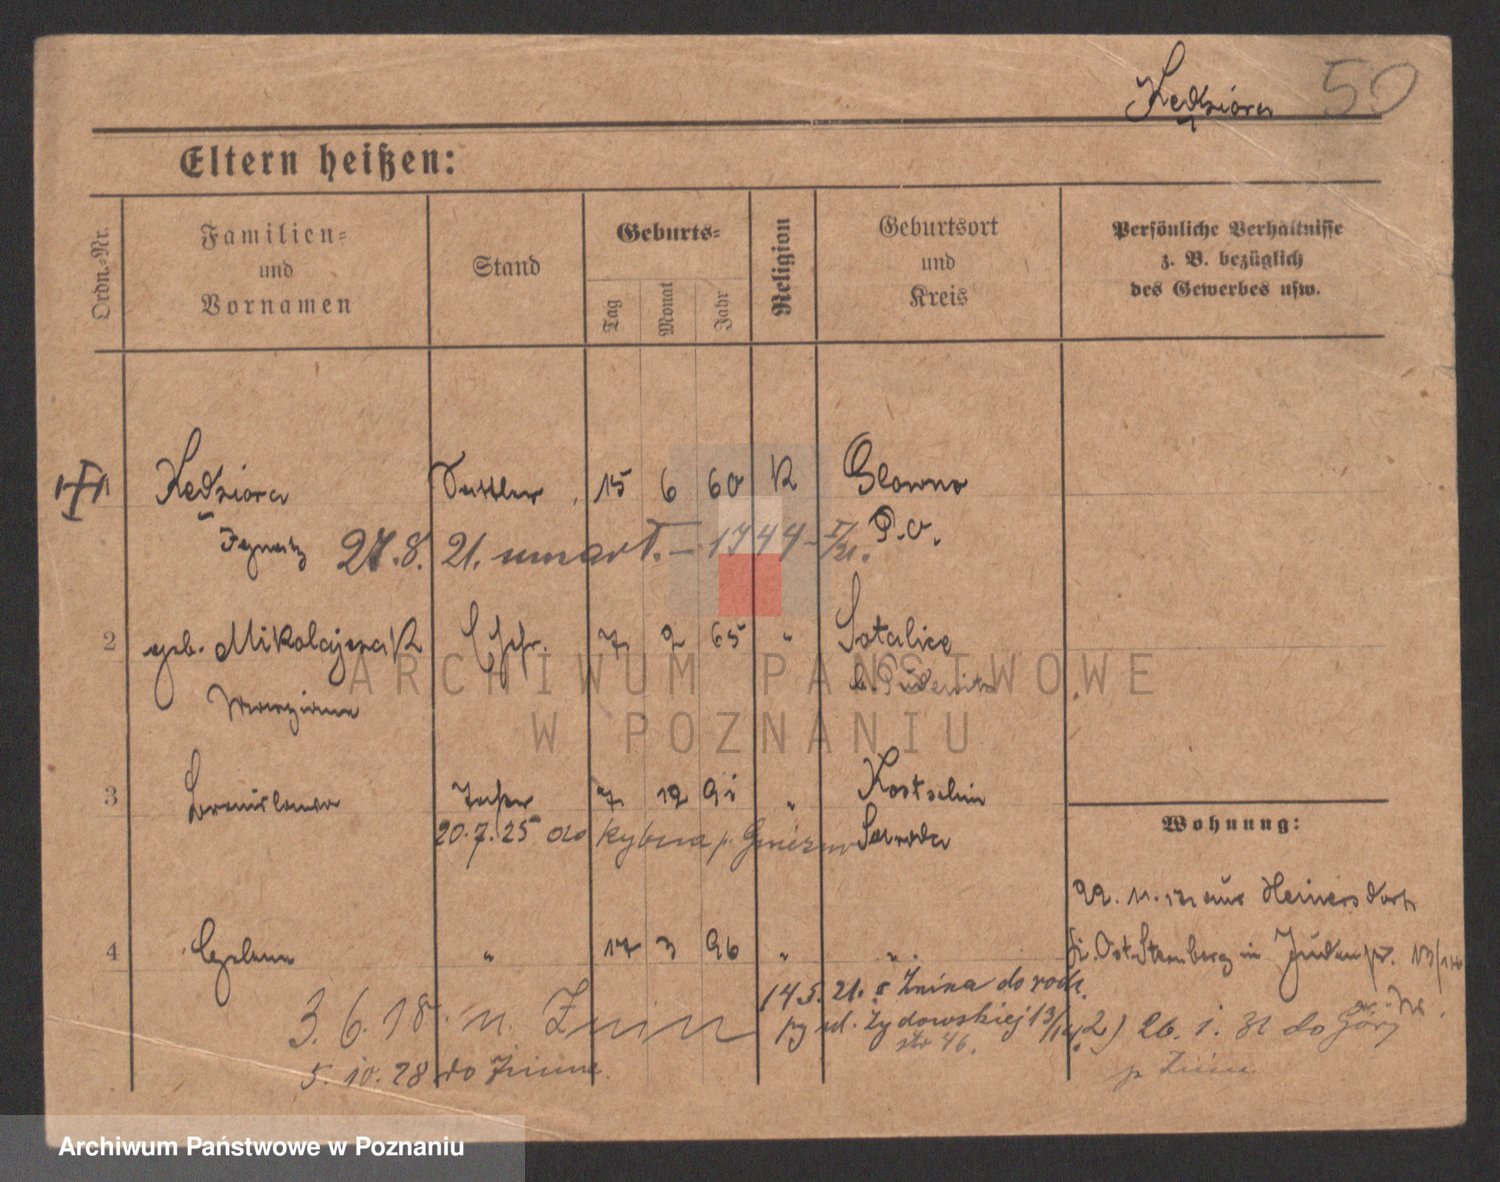 Kędziora 50
Eltern heißen:
Ordn.-Nr.
Familien-
und
Vornamen
Stand
Geburts-
Tag
Monat
Jahr
Religion
Geburtsort
und
Kreis
Persönliche Verhältnisse
z. B. bezüglich
des Gewerbes usw.
1 Kędziora Sattler 15 6 60 K Glowno
Ignatz P.O.
27.8. 21. umarł. – 1744 –
2 geb. Mikolajczak Ehefr. 7 2 65 " Sotalice
Maryanna b. Pudewitz
3 Bronislawa Tochter 7 12 91 " Kostschin
20.7.25 do p. Gniezno Schroda
Wohnung:
22. 11. aus Heinersdorf
4 Helena " 17 3 96 " "
Kr. Ost Sternberg in Judenstr. 13/14
14 5. 21. z Żnina do rodz.
3. 6. 18. n. Znin
przy ul. Żydowskiej 13/14
2) 26. 1. 31 do Góry
str 46.
p Żnin
5. 10. 28 do Żnina
ARCHIWUM PAŃSTWOWE
W POZNANIU
Archiwum Państwowe w Poznaniu